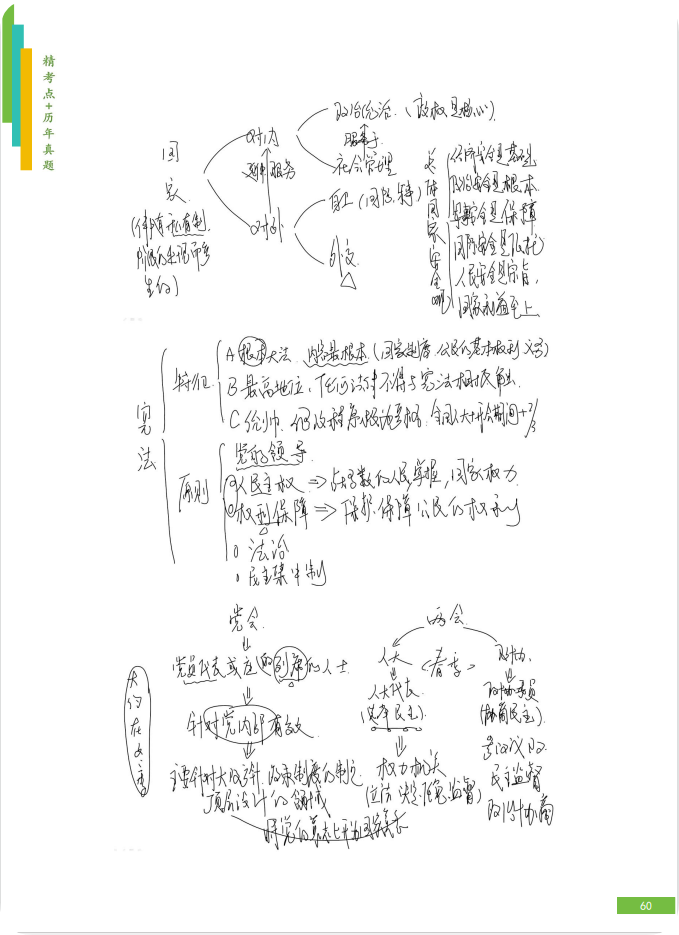 精考点+历年真题
国家
对内
政治统治（政权是核心）
服务于
社会管理
服务
对外
自卫（国防.
外交
(伴随私有制
阶级的出现而产
生的)
总体国家安全观
经济安全是基础
政治安全是根本
是保障
国际安全是依托
人民安全是宗旨，
国家利益至上
宪法
特征
A 根本大法 内容最根本（国家制度 公民的基本权利义务）
B 最高地位，任何法律不得与宪法相抵触.
C 修改程序 严格 全国人大 2/3
原则
党的领导
人民主权 ⇒ 占多数的人民掌握，国家权力
权利保障 ⇒ 保护.保障公民的权利
法治
民主集中制
党会
两会
党员代表或 列席的人士
人大
<春季>
政协.
人大代表
(选举民主)
政协委员
(协商民主)
针对党内部有效
主要针对大政方针.制度的制定
顶层设计的领域
权力机关
(立法 决定 任免 监督)
参政议政
民主监督
政治协商
将党的意志上升为国家意志
60